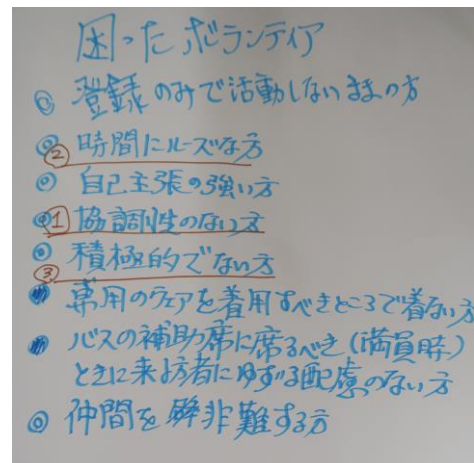 困ったボランティア
◎ 登録のみで活動しないままの方
◎ ② 時間にルーズな方
◎ 自己主張の強い方
◎ 1 協調性のない方
◎ 積極的でない方
③
専用のウェアを着用すべきところで着ない方
バスの補助席に席るべき(満員時)
ときに来訪者にゆずる配慮のない方
◎ 仲間を非難する方